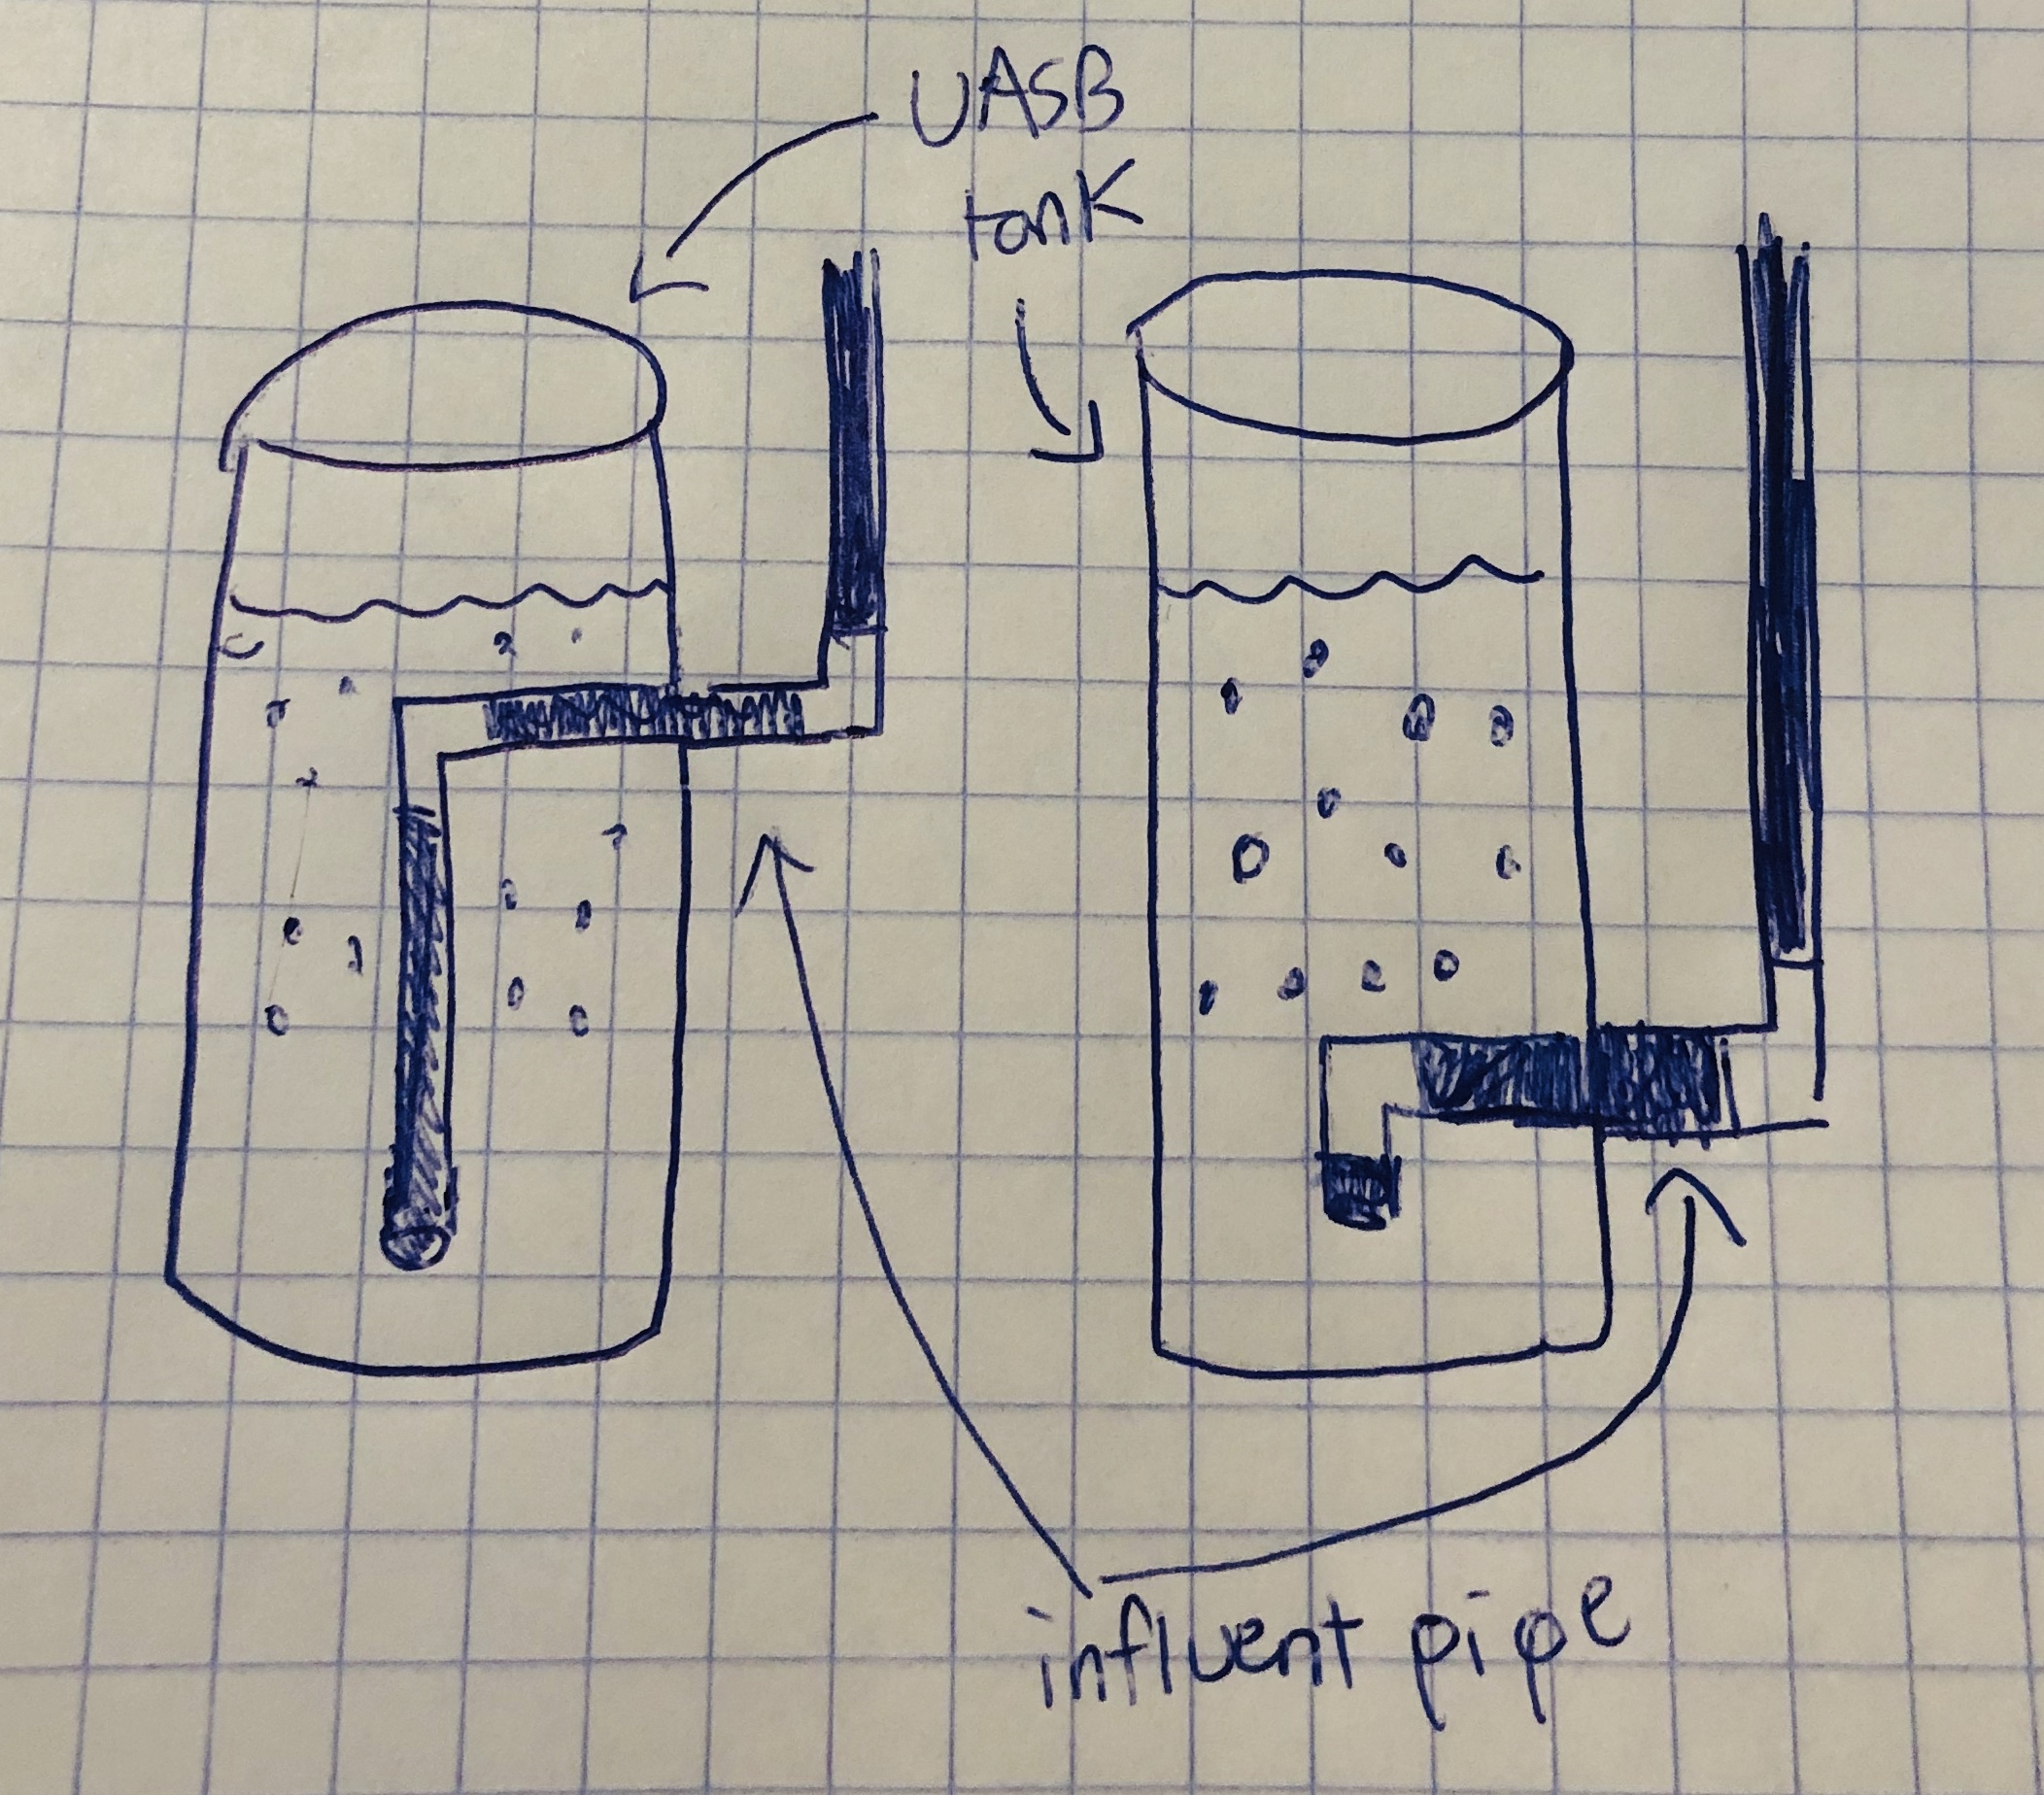 UASB
tank
influent pipe